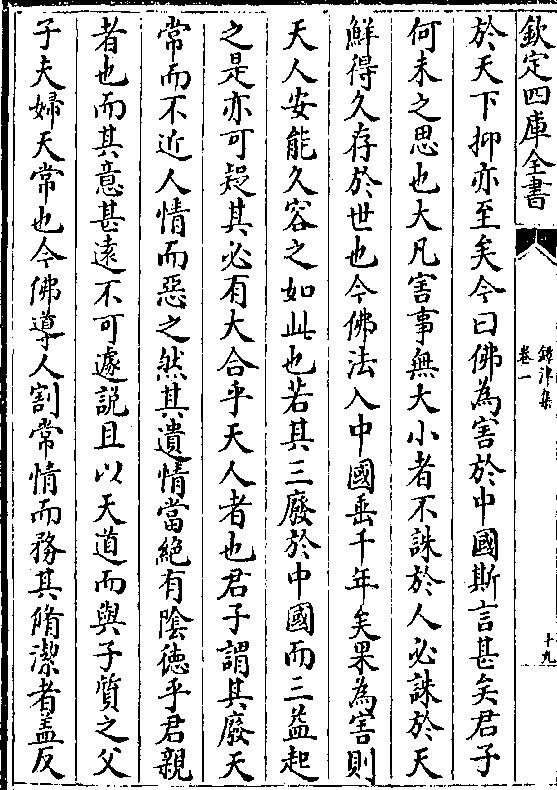 欽定四庫全書
鐔津集
卷一
十九
於天下抑亦至矣今曰佛為害於中國斯言甚矣君子
何未之思也大凡害事無大小者不誅於人必誅於天
鮮得久存於世也今佛法入中國垂千年矣果為害則
天人安能久容之如此也若其三廢於中國而三益起
之是亦可疑其必有大合乎天人者也君子謂其廢天
常而不近人情而惡之然其遺情當絶有隂德乎君親
者也而其意甚逺不可遽説且以天道而與子質之父
子夫婦天常也今佛導人割常情而務其脩潔者盖反